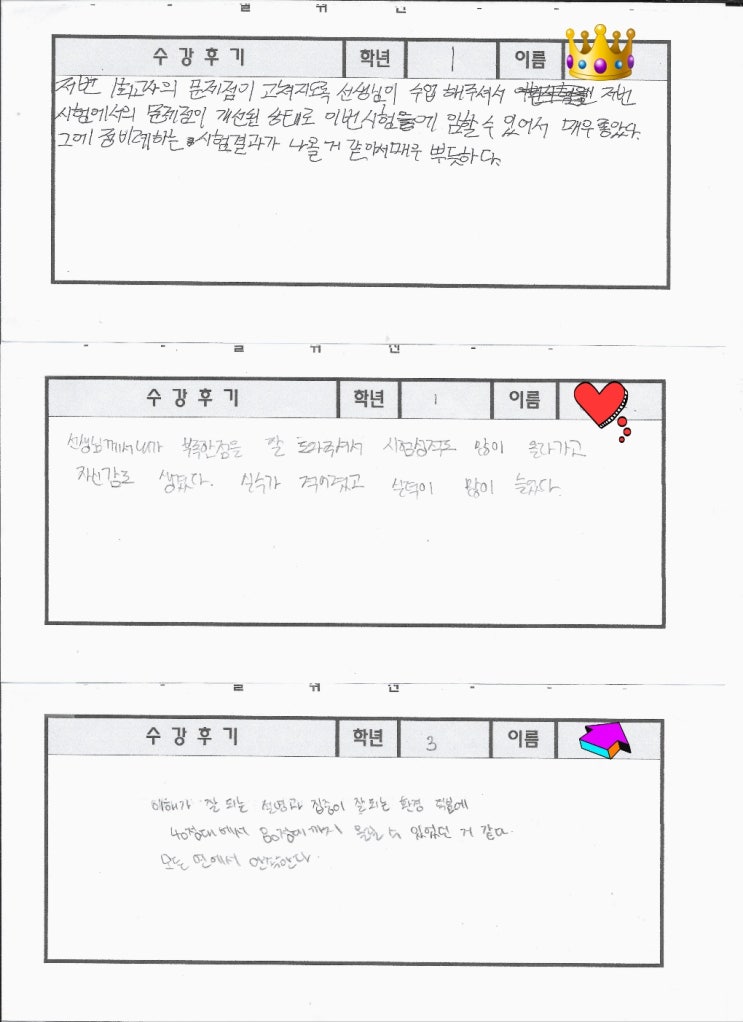 수강후기 학년 1 이름
저번 1회고사의 문제점이 고쳐지도록 선생님이 수업 해주셔서 저번
시험에서의 문제점이 개선된 상태로 이번시험에 임할 수 있어서 매우 좋았다.
그에 정비례하는 시험결과가 나올 거 같아서 매우 뿌듯하다.
수강후기 학년 1 이름
선생님께서 내가 부족한점을 잘 도와주셔서 시험성적도 많이 올라가고
자신감도 생겼다. 실수가 적어졌고 실력이 많이 늘었다.
수강후기 학년 3 이름
이해가 잘 되는 설명과 집중이 잘되는 환경 덕분에
40점대에서 80점대까지 올릴 수 있었던 거 같다.
모든 면에서 만족한다.